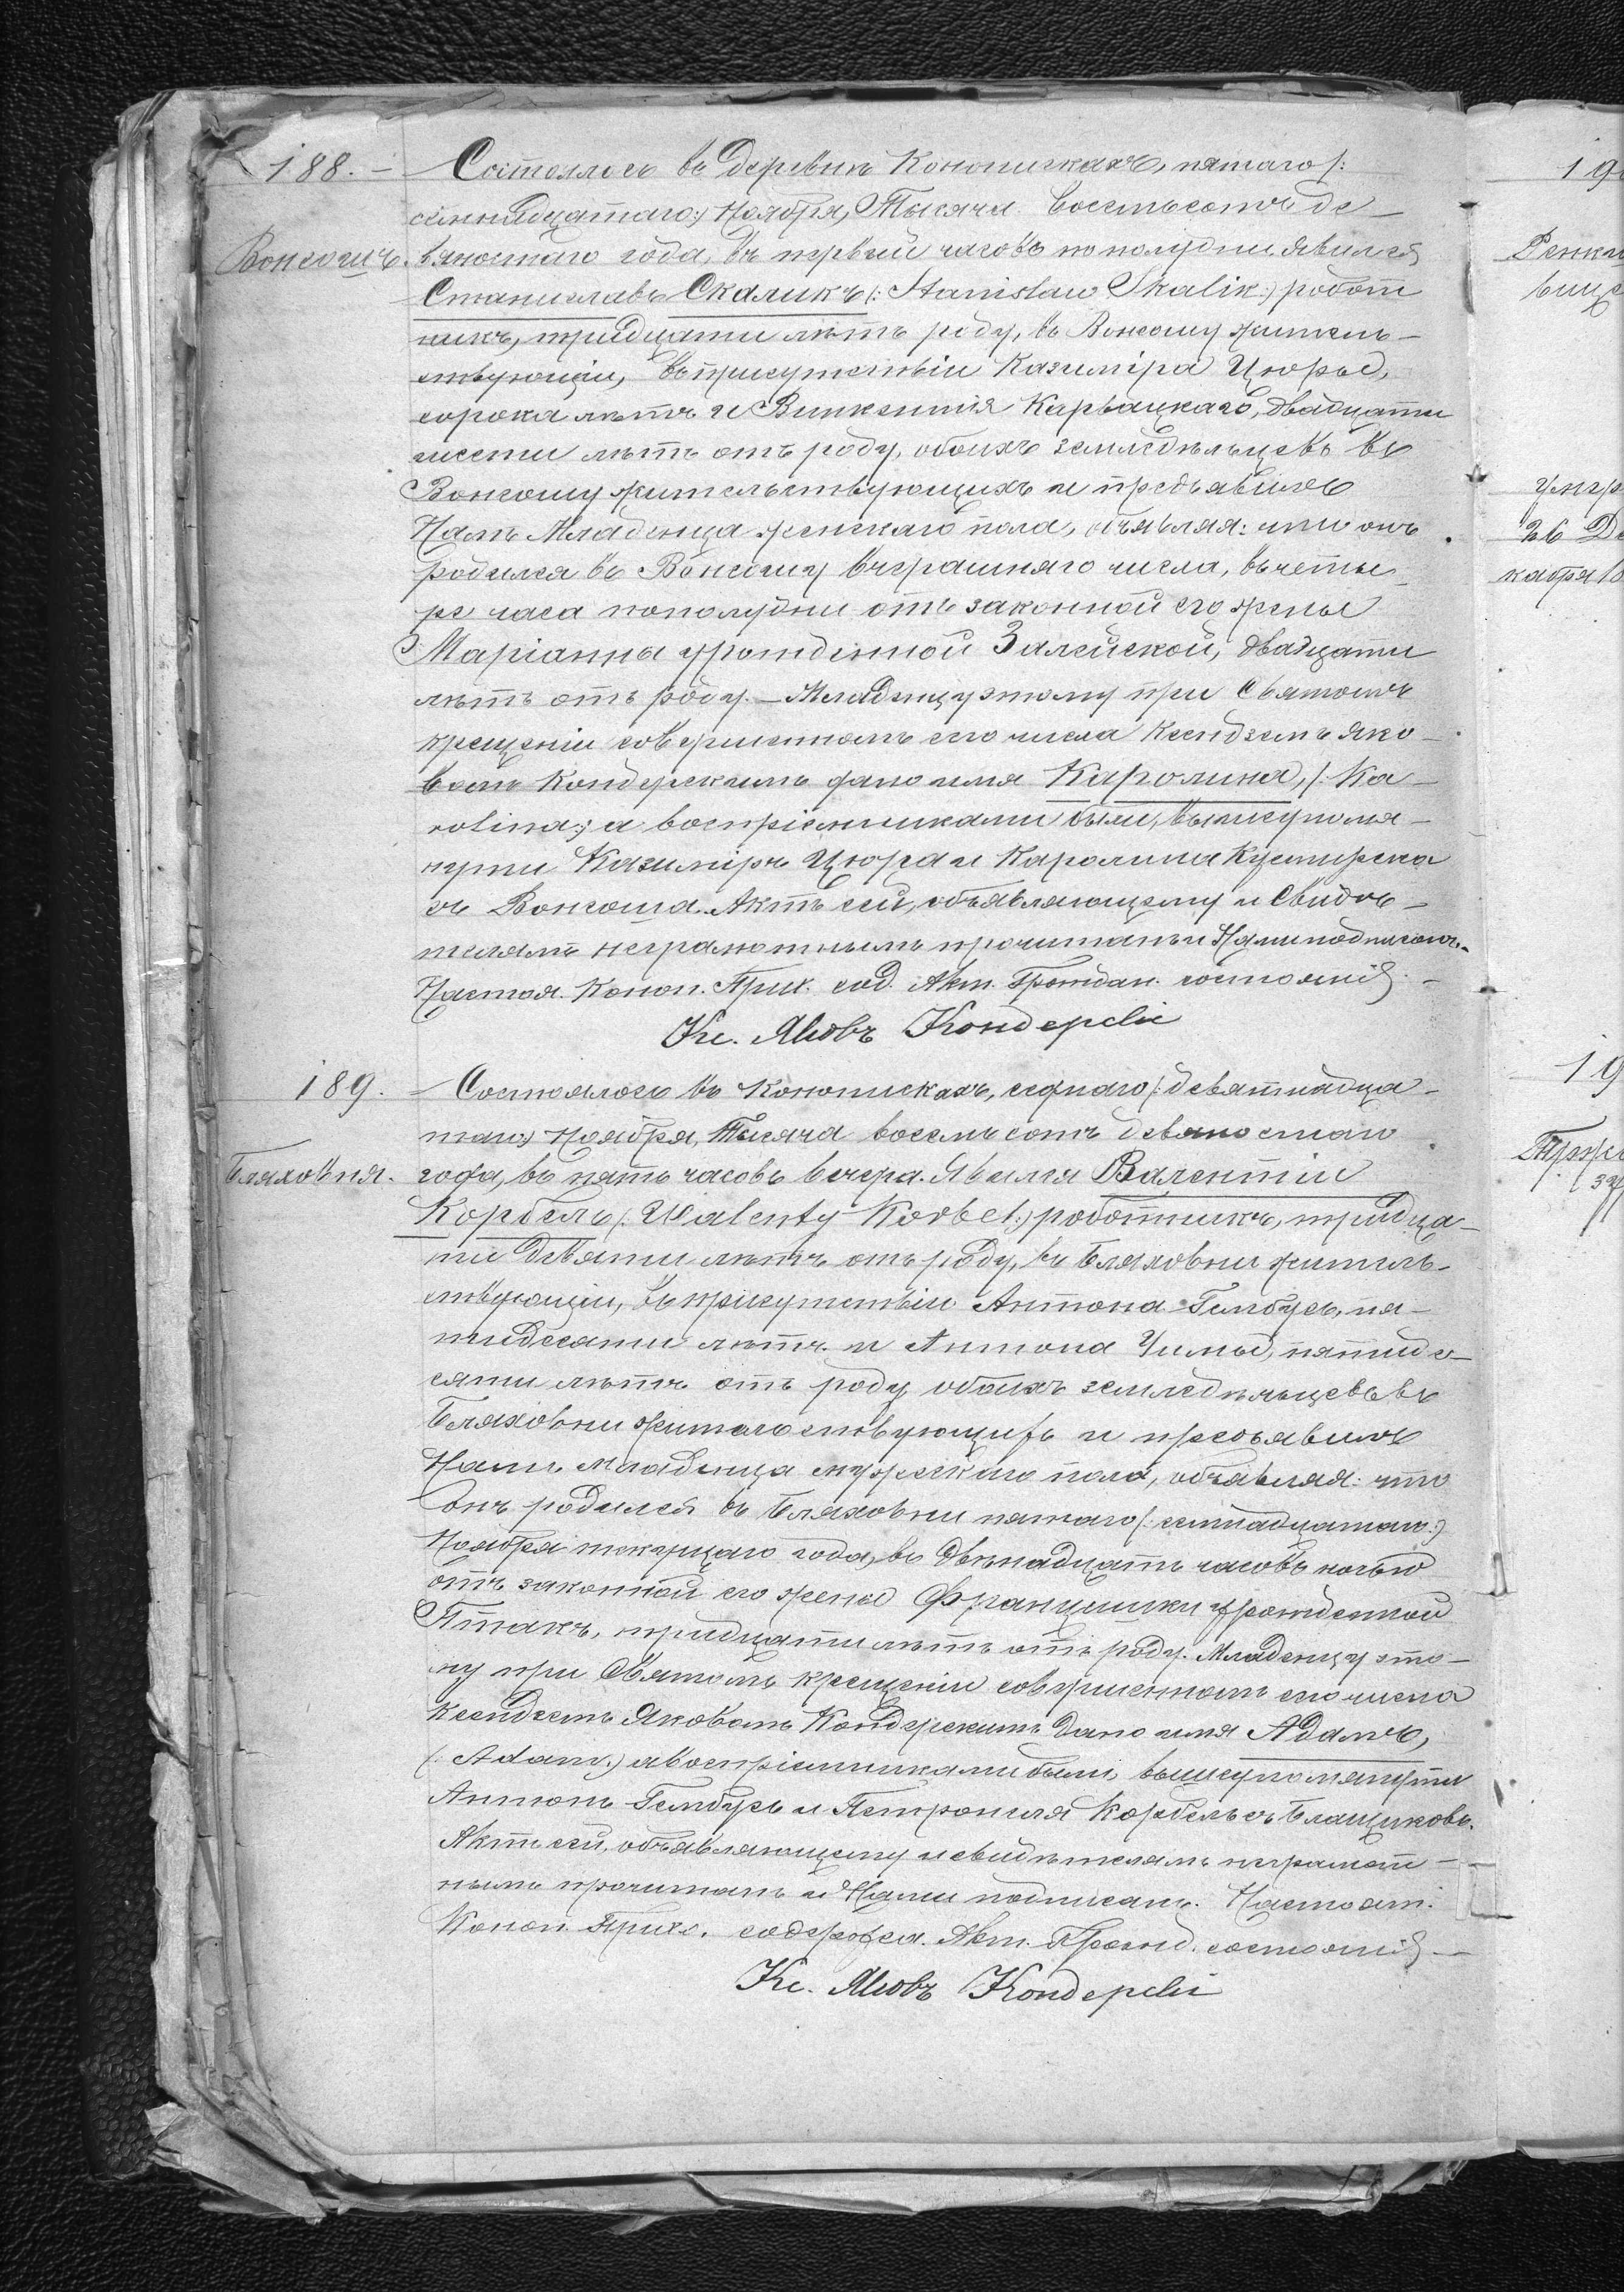 188. — Состоялось въ деревнѣ Конопискахъ, пятаго /:
семнадцатаго:/ Ноября, Тысяча восемьсотъ де-
Вонсошъ. вяностаго года, въ первый часовъ пополудни. Явился
Станиславъ Скаликъ /: Stanisław Skalik :/ работ
никъ, тридцати лѣтъ роду, въ Вонсошу житель-
ствующiй, въ присутствiи Казимiра Цюры,
сорока лѣтъ и Винкентiя Карвацкаго, двадцати
шести лѣтъ отъ роду, обоихъ земледѣльцевъ въ
Вонсошу жительствующихъ и предъявилъ
Намъ Младенца женскаго пола, объявляя: что онъ
родился въ Вонсошу вчерашняго числа, въ четы-
ре часа пополудни отъ законной его жены
Марiанны урожденной Залейской, двадцати
лѣтъ отъ роду. — Младенцу этому при Святомъ
крещенiи совершенномъ сего числа Ксендземъ Яко-
вомъ Кондерскимъ дано имя Каролина, /: Ka-
rolina:/ а воспрiемниками были, вышеупомя-
нутый Казимiръ Цюра и Каролина
съ Вонсоша. Актъ сей, объявляющему и Свидѣ-
телямъ неграмотнымъ прочитанъ и Нами подписанъ.
Настоя. Коноп. Прих. сод. Акт. Граждан. состоянiя. —
Кс. Яковъ Кондерскiй
189. — Состоялось въ Конопискахъ, седмаго /: девятнадца-
таго:/ Ноября, Тысяча восемьсотъ девяностаго
Бляховня. года, въ пять часовъ вечера. Явился Валентiй
Корбель /: Walenty Korbel :/ работникъ, тридца-
ти девяти лѣтъ отъ роду, въ Бляховни житель-
ствующiй, въ присутствiи Антона Гембусь, пя-
тидесяти лѣтъ и Антона Чимы, пятиде-
сяти лѣтъ отъ роду обоихъ земледѣльцевъ въ
Бляховни жительствующихъ и предъявилъ
Намъ младенца мужескаго пола, объявляя: что
онъ родился въ Бляховни пятаго /: семнадцатаго:/
Ноября текущаго года, въ двѣнадцать часовъ ночью
отъ законной его жены Францишки урожденной
Птакъ, тридцати лѣтъ отъ роду. Младенцу это-
му при Святомъ крещенiи совершенномъ сего числа
Ксендземъ Яковомъ Кондерскимъ дано имя Адамъ,
/: Adam:/ а воспрiемниками были, вышеупомянутый
Антонъ Гембусь и Петронеля Корбель съ Блащиковъ.
Актъ сей, объявляющему и свидѣтелямъ неграмот-
нымъ прочитанъ и Нами подписанъ. Настоят.
Коноп. Прихо. содержа. Акт. Гражд. состоянiя —
Кс. Яковъ Кондерскiй
26 Де
кабря